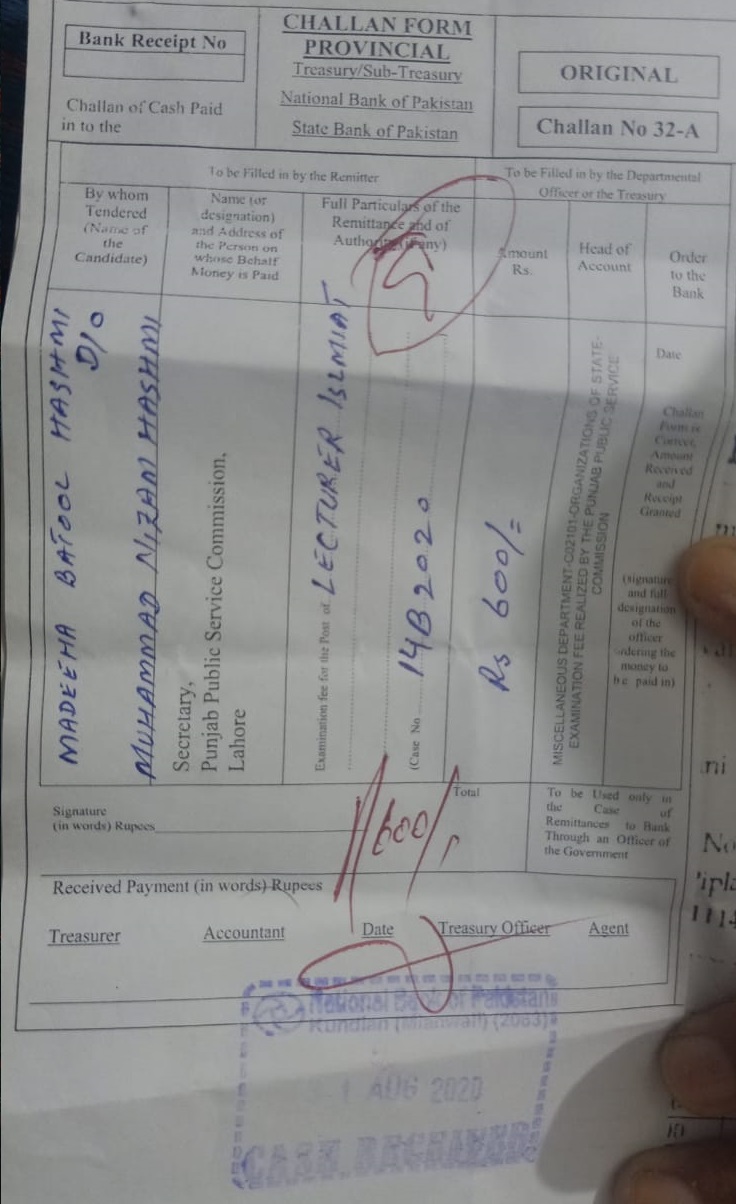 Bank Receipt No
Challan of Cash Paid
in to the
CHALLAN FORM
PROVINCIAL
Treasury/Sub-Treasury
National Bank of Pakistan
State Bank of Pakistan
ORIGINAL
Challan No 32-A
To be Filled in by the Remitter
To be Filled in by the Departmental
Officer or the Treasury
By whom
Tendered
(Name of
the
Candidate)
Name (or
designation)
and Address of
the Person on
whose Behalf
Money is Paid
Full Particulars of the
Remittance and of
Authority (if any)
Amount
Rs.
Head of
Account
Order
to the
Bank
MADEEHA BATOOL HASHMI
D/O
MUHAMMAD NIZAM HASHMI
Secretary,
Punjab Public Service Commission,
Lahore
Examination fee for the Post of LECTURER ISLMIAT
(Case No 14B2020
Rs 600/=
MISCELLANEOUS DEPARTMENT-C02101-ORGANIZATIONS OF STATE-
EXAMINATION FEE REALIZED BY THE PUNJAB PUBLIC SERVICE
COMMISSION
Date
Challan
Form is
Correct,
Amount
Received
and
Receipt
Granted
(signature
and full
designation
of the
officer
ordering the
money to
be paid in)
Signature
(in words) Rupees
Total
600/
To be Used only in
the Case of
Remittances to Bank
Through an Officer of
the Government
Received Payment (in words) Rupees
Treasurer
Accountant
Date
Treasury Officer
Agent
National Bank of Pakistan
Kundian (Mianwali) (2083)
AUG 2020